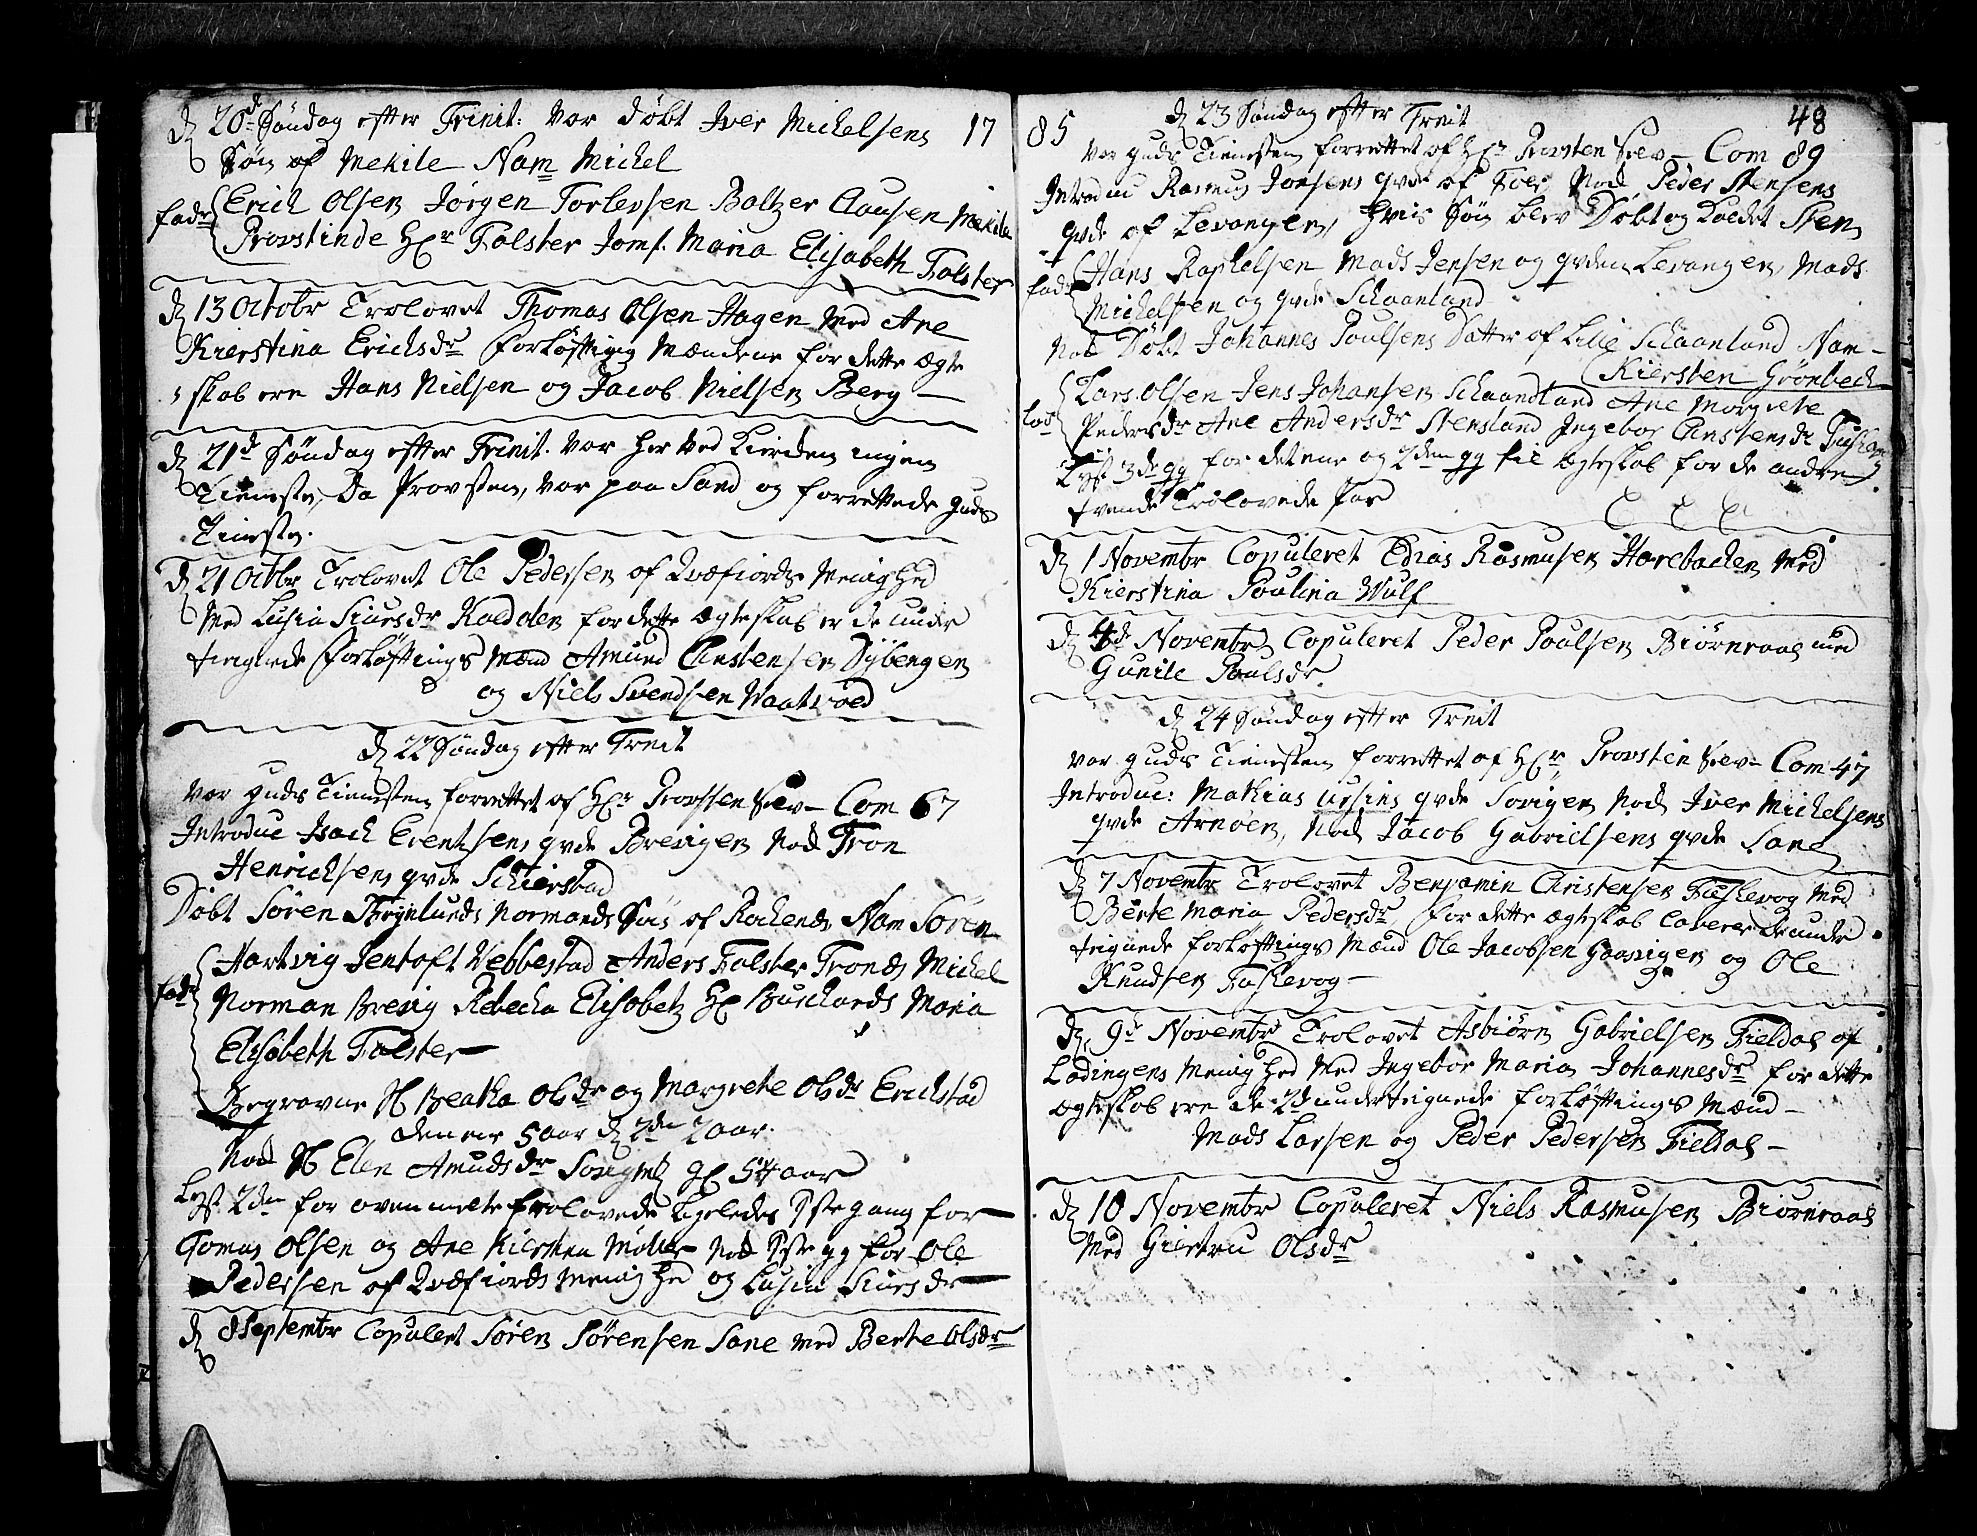 17
d 20d Søndag efter Trinit: var døbt Iver Michelsens
Søn af Mekile Nam Michel
fadr Erich Olsen Jørgen Torlevsen Baltzer Clausen Mekile
Provstinde Hr Falster Jomf. Maria Elisabeth Falster
d 13 Octobr Trolovet Thomas Olsen Hagen med Ane
Kierstina Erichsdr forløftning Mændene for dette Ægte
skab ere Hans Nielsen og Jacob Nielsen Berg
d 21d Søndag efter Trinit. var her ved Kierken ingen
Tieneste, da Provsten, var paa Sand og forrettede guds
Tieneste.
d 21 Octbr Trolovet Ole Pedersen af Qvæfiords Menighed
med Lusia Siursdr Kaddelen for dette ægteskab er de under
tegnede forløftnings Mænd Amund Anstensen Dybengen
og Niels Svendsen Vaatvoed
d 22 Søndag efter Treit
var guds Tienesten forrettet af Hr Provsten Srev Com 67
Introduc Isach Erentsens qvde Brevigen Nok Tron
Henrichsens qvde Schierstad
Døbt Søren Brynlunds Normands Søn af Rochenes Nam Søren
fadr Hartvig Jentoft Vebbestad Anders Falster Trondes Michel
Norman Brevig Rebecha Elisabetz Hr Burchards Maria
Elisabeth Falster
Begravne Beatha Olsdr og Margrete Olsdr Erichstad
den ene 5 aar d 2den 2 aar.
Nok Elen Amudsdr 54 aar
Lyst 2den for ovenmelte trolovede Ligeledes 1ste gang for
Tomas Olsen og Ane Kierstina Møller Nok 1ste gg for Ole
Pedersen af Qvæfiords Menighed og Lusia Siursdr
d 8 Septembr Copulert Søren Sørensen Sane med Berte Olsdr
85
48
d 23 Søndag efter Treit
var guds Tienesten forrettet af Hr Provsten Srev Com 89
Introduc Rasmus Jonsens qvde af Nok Peder Stensens
qvde af Levangen, hvis Søn blev Døbt og kaldet Sten
fadr Hans Raphelsen Mads Jensen og qvden Levangen, Mads
Michelsen og qvde Schaanland
Nok Døbt Johannes Poulsens Datter af Lille Schaanland Nam
Kiersten Grønbech
fadr Lars Olsen Jens Johansen Schaandland Ane Morgrete
Pedersdr Ane Andersdr Stensland Ingebor Anstensdr
Lyst 3de gg for det ene og 2den gg til Ægteskab for de andre
tvende Trolovede Par
d 1 Novembr Copuleret Edias Rasmusen Harebachen med
Kierstina Poulina Wulf
d 4de Novembr Copuleret Peder Poulsen Biørnraae med
Gunile Poulsdr
d 24 Søndag efter Treit
var guds Tienesten forrettet af Hr Provsten Srev Com 47
Introduc: Mathias Ursins qvde Sovigen Nok Iver Michelsens
qvde Arnøen, Nok Jacob Gabrielsens qvde Sane
d 7 Novembr Trolovet Benjamin Christensen Faskevog med
Berte Maria Pedersdr for dette Ægteskab Caverer de under
tegnede forløftnings Mænd Ole Jacobsen Gaasvigen og Ole
Knudsen Faskevog
d. 9d Novembr Trolovet Asbiørn Gabrielsen Fieldal af
Lødingens Menighed med Ingebor Maria Johannesdr for dette
Ægteskab ere de 2de undertegnede forløftnings Mænd
Mads Larsen og Peder Pedersen Fieldal
d 10 Novembr Copuleret Niels Rasmusen Biørnraae
med Giertru Olsdr